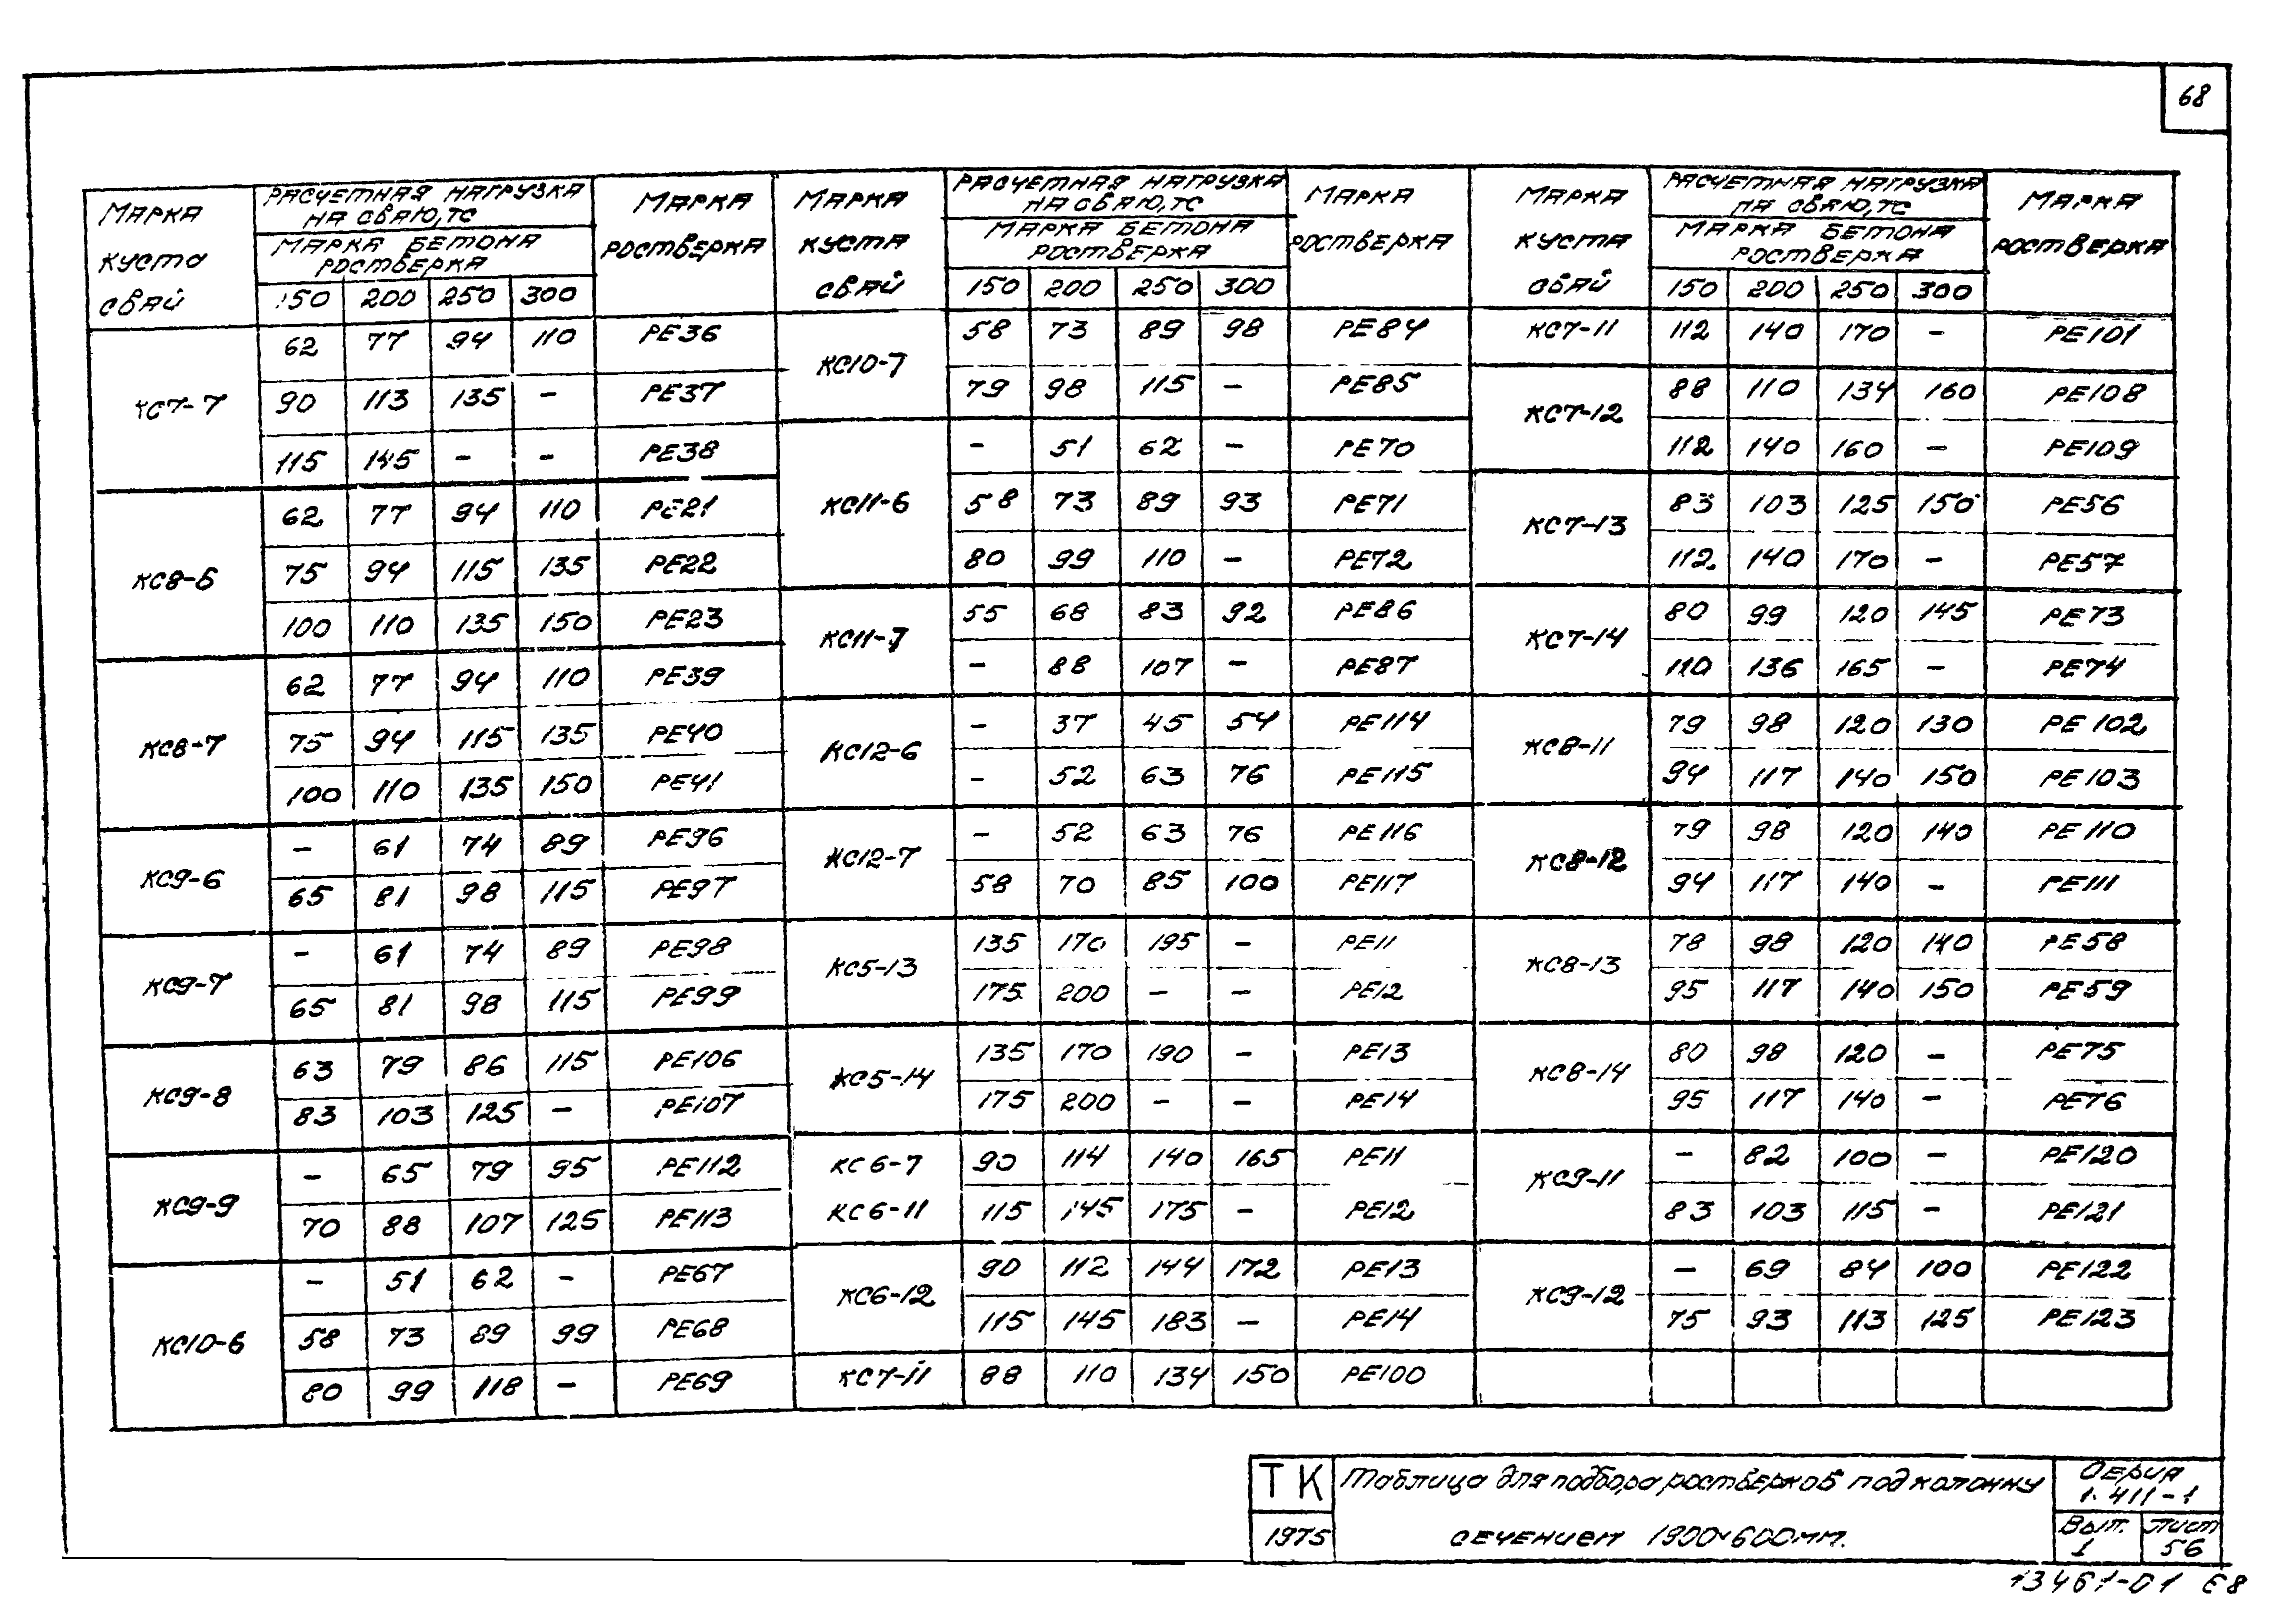 68
МАРКА КУСТА СВАЙ | РАСЧЕТНАЯ НАГРУЗКА НА СВАЮ, ТС | МАРКА РОСТВЕРКА | МАРКА КУСТА СВАЙ | РАСЧЕТНАЯ НАГРУЗКА НА СВАЮ, ТС | МАРКА РОСТВЕРКА | МАРКА КУСТА СВАЙ | РАСЧЕТНАЯ НАГРУЗКА НА СВАЮ, ТС | МАРКА РОСТВЕРКА
МАРКА БЕТОНА РОСТВЕРКА | МАРКА БЕТОНА РОСТВЕРКА | МАРКА БЕТОНА РОСТВЕРКА
150 200 250 300 | 150 200 250 300 | 150 200 250 300
КС7-7
62 77 94 110 РЕ36
90 113 135 – РЕ37
115 145 – – РЕ38
КС8-6
62 77 94 110 РЕ21
75 94 115 135 РЕ22
100 110 135 150 РЕ23
КС8-7
62 77 94 110 РЕ39
75 94 115 135 РЕ40
100 110 135 150 РЕ41
КС9-6
– 61 74 89 РЕ96
65 81 98 115 РЕ97
КС9-7
– 61 74 89 РЕ98
65 81 98 115 РЕ99
КС9-8
63 79 86 115 РЕ106
83 103 125 – РЕ107
КС9-9
– 65 79 95 РЕ112
70 88 107 125 РЕ113
КС10-6
– 51 62 – РЕ67
58 73 89 99 РЕ68
80 99 118 – РЕ69
КС10-7
58 73 89 98 РЕ84
79 98 115 – РЕ85
КС11-6
– 51 62 – РЕ70
58 73 89 93 РЕ71
80 99 110 – РЕ72
КС11-7
55 68 83 92 РЕ86
– 88 107 – РЕ87
КС12-6
– 37 45 54 РЕ114
– 52 63 76 РЕ115
КС12-7
– 52 63 76 РЕ116
58 70 85 100 РЕ117
КС5-13
135 170 195 – РЕ11
175 200 – – РЕ12
КС5-14
135 170 190 – РЕ13
175 200 – – РЕ14
КС6-7 90 114 140 165 РЕ11
КС6-11 115 145 175 – РЕ12
КС6-12
90 112 144 172 РЕ13
115 145 183 – РЕ14
КС7-11 88 110 134 150 РЕ100
КС7-11 112 140 170 – РЕ101
КС7-12
88 110 134 160 РЕ108
112 140 160 – РЕ109
КС7-13
83 103 125 150 РЕ56
112 140 170 – РЕ57
КС7-14
80 99 120 145 РЕ73
110 136 165 – РЕ74
КС8-11
79 98 120 130 РЕ102
94 117 140 150 РЕ103
КС8-12
79 98 120 140 РЕ110
94 117 140 – РЕ111
КС8-13
78 98 120 140 РЕ58
95 117 140 150 РЕ59
КС8-14
80 98 120 – РЕ75
95 117 140 – РЕ76
КС9-11
– 82 100 – РЕ120
83 103 115 – РЕ121
КС9-12
– 69 84 100 РЕ122
75 93 113 125 РЕ123
ТК
1975
Таблица для подбора ростверков под колонну
сечением 1900×600мм.
Серия
1.411-1
Вып. 1
Лист 56
13461-01 68